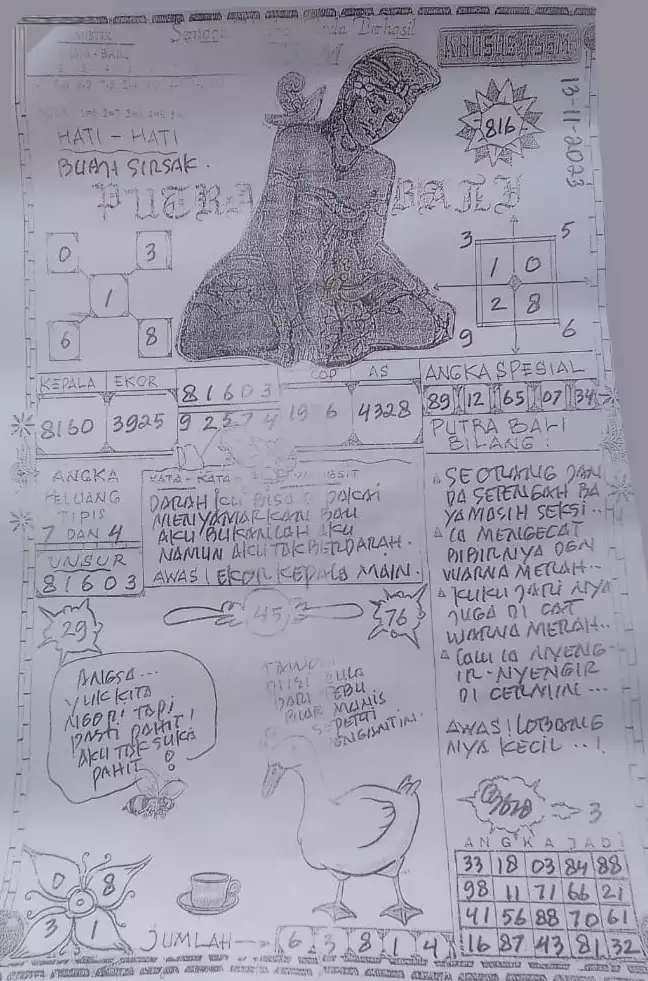 KHUSUS TSSM
13-11-2023
816
HATI - HATI
BUAH SIRSAK.
PUTRA BALI
0 3
1
6 8
3 5
1 0
2 8
9 6
KEPALA EKOR
8160 3925
81603
92574
COP AS
4328
ANGKA SPESIAL
89 12 65 07 34
ANGKA
PELUANG
TIPIS
7 DAN 4
UNSUR
81603
DARAH KU BISA DI PAKAI
MENYAMARKAN BAU
AKU BUKANLAH AKU
NAMUN AKU TAK BERDARAH.
AWAS! EKOR KEPALA MAIN.
PUTRA BALI
BILANG:
SEORANG JAN
DA SETENGAH BA
YA MASIH SEKSI..
IA MENGECAT
BIBIRNYA DGN
WARNA MERAH..
KUKU JARI NYA
JUGA DI CAT
WARNA MERAH..
LALU IA NYENG-
IR-NYENGIR
DI CERMIN...
AWAS! LOBANG
NYA KECIL..!
29
45
76
ANGSA...
YUK KITA
NGOPI TAPI
PASTI PAHIT!
AKU TAK SUKA
PAHIT
DARI TEBU
BIAR MANIS
SEPERTI
PENGANTIN.
3
ANGKA JADI
33 18 03 84 88
98 11 71 66 21
41 56 88 70 61
16 87 43 81 32
0 8
3 1
JUMLAH 6 3 8 1 4